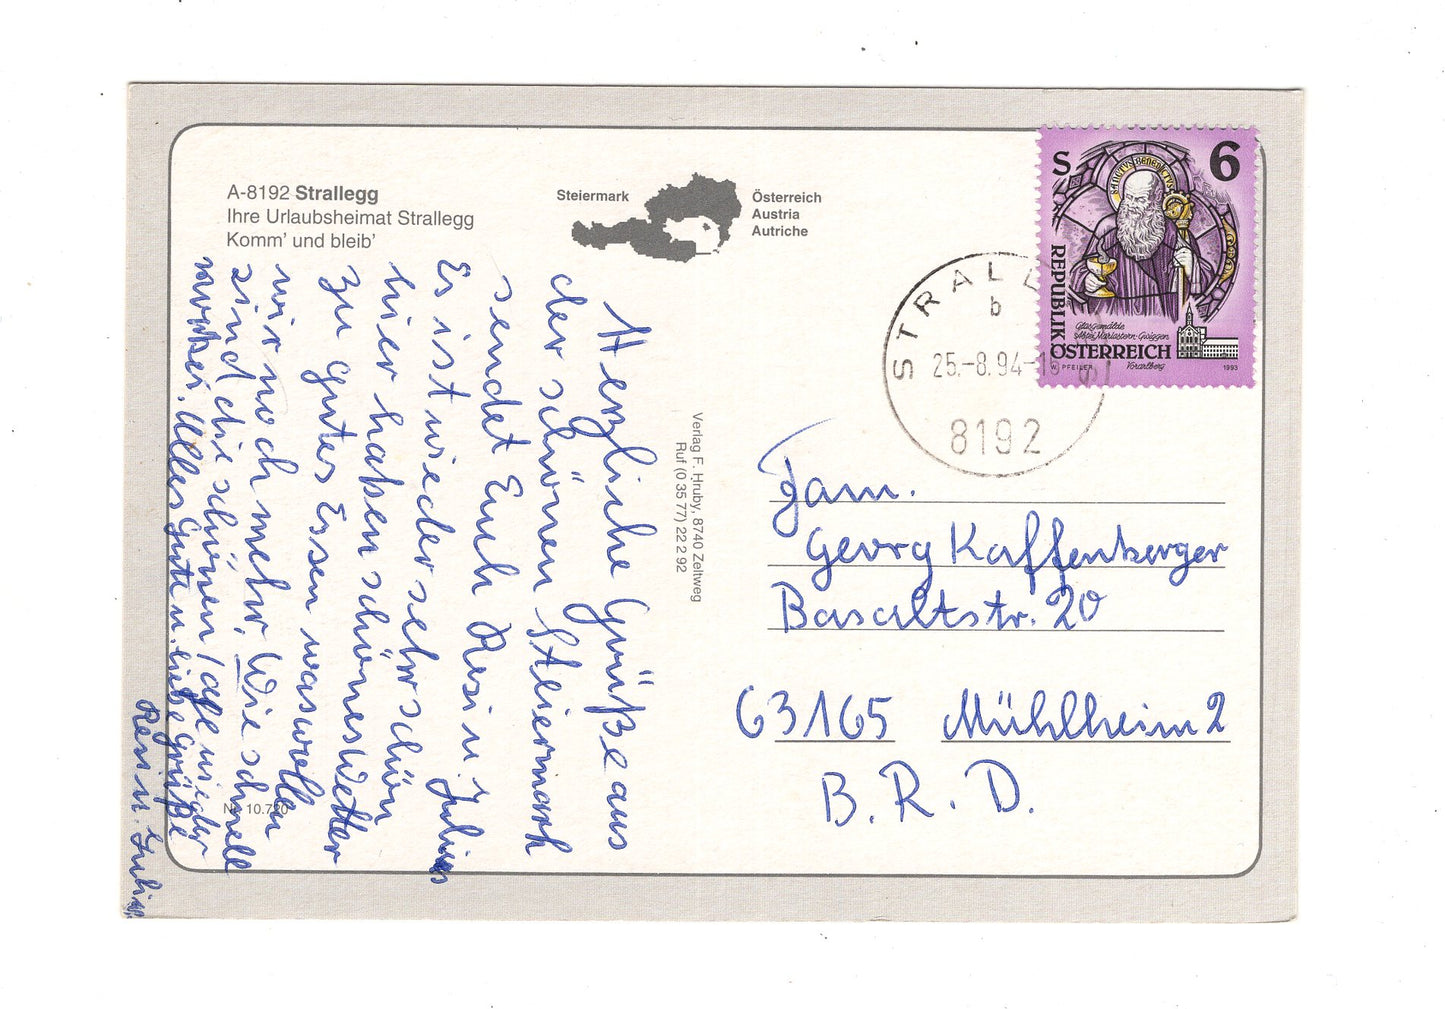 A-8192 Strallegg
Ihre Urlaubsheimat Strallegg
Komm' und bleib'
Steiermark
Österreich
Austria
Autriche
S 6
SANCTVS BENEDICTVS
REPUBLIK
ÖSTERREICH
Glasgemälde
Abtei Mariastern-Gwiggen
Vorarlberg
W. PFEILER
1993
b
25.-8.94-
8192
Herzliche Grüße aus
der schönen Steiermark
sendet Euch Resi u. Julius
Es ist wieder sehr schön
hier haben schönes Wetter
zu gutes Essen was wollen
wir noch mehr. Wie schnell
sind die schönen Tage wieder
vorbei. Alles Gute u. liebe Grüße
Resi u. Julius
Verlag F. Hruby, 8740 Zeltweg
Ruf (0 35 77) 22 2 92
Nr. 10.720
Fam.
Georg Kaffenberger
Basaltstr. 20
63165 Mühlheim 2
B. R. D.